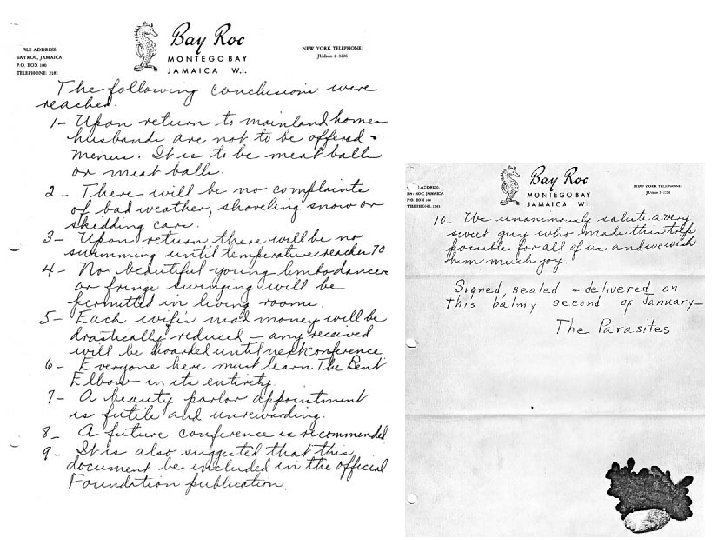 Bay Roc
MONTEGO BAY
JAMAICA W.
ADDRESS
BAY ROC, JAMAICA
P.O. BOX
TELEPHONE
NEW YORK TELEPHONE
The following conclusions were
reached.
1- Upon return to mainland homes
husbands are not to be offered
menus. It is to be meat balls
or meat balls.
2- There will be no complaints
of bad weather, shoveling snow or
skidding cars.
3- Upon return there will be no
swimming until temperature reaches 70
4- No beautiful young limbo dancers
or fringe swinging will be
permitted in living rooms.
5- Each wife's mad money will be
drastically reduced - any received
will be hoarded until next conference
6- Everyone here must learn The Bent
Elbow - in its entirety.
7- A beauty parlor appointment
is futile and unrewarding.
8- A future conference is recommended
9- It is also suggested that this
document be included in the official
Foundation publication.
Bay Roc
MONTEGO BAY
JAMAICA W.
ADDRESS
BAY ROC, JAMAICA
P.O. BOX
TELEPHONE
NEW YORK TELEPHONE
10- We unanimously salute a very
sweet guy who made this trip
possible for all of us and we wish
him much joy
Signed, sealed - delivered on
this balmy second of January -
The Parasites